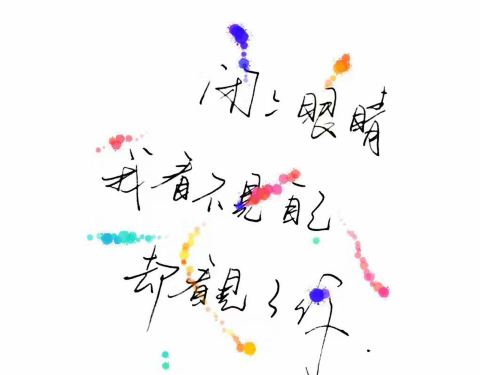 闭上眼睛
我看不见自己
却看见了你.